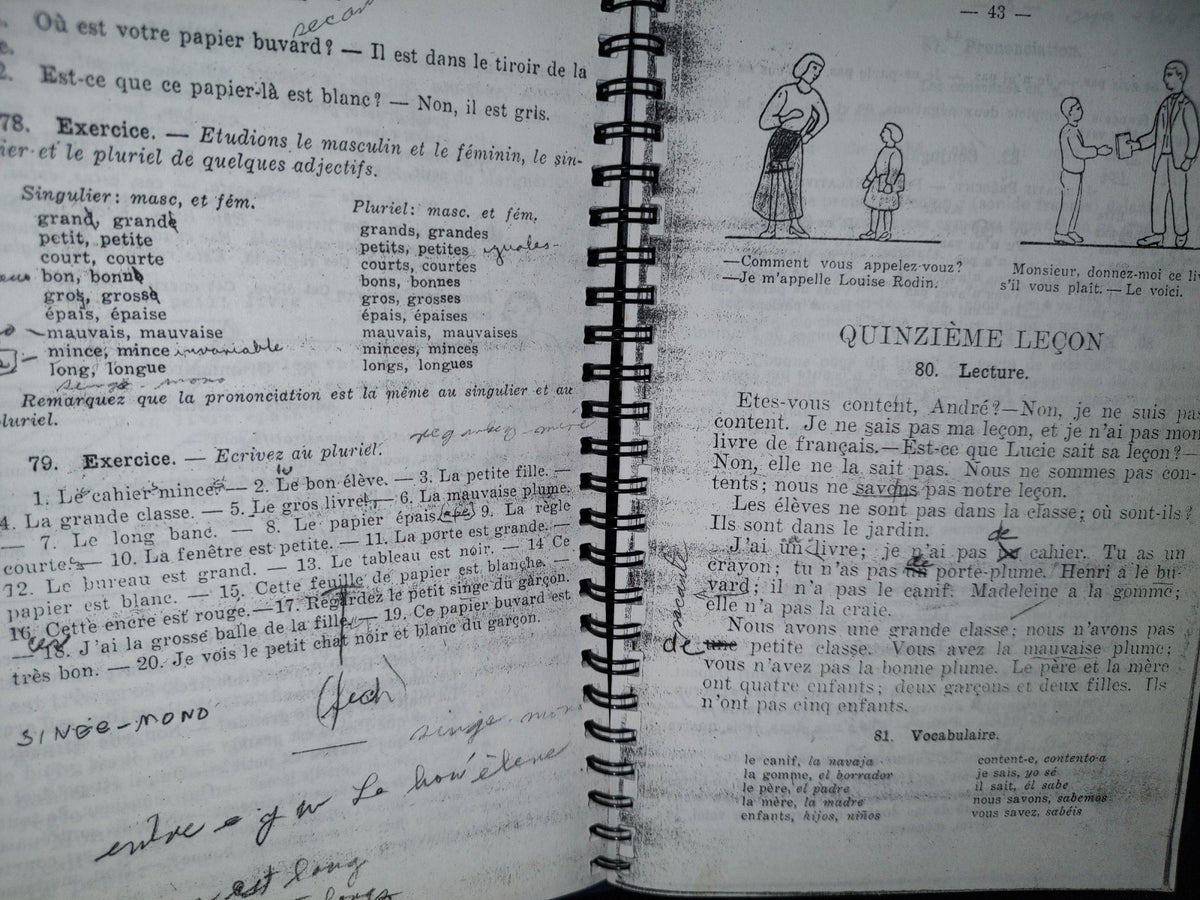 Où est votre papier buvard? — Il est dans le tiroir de la
2. Est-ce que ce papier-là est blanc? — Non, il est gris.
78. Exercice. — Etudions le masculin et le féminin, le sin-
ier et le pluriel de quelques adjectifs.
Singulier: masc, et fém.
grand, grande
petit, petite
court, courte
bon, bonne
gros, grosse
épais, épaise
mauvais, mauvaise
mince, mince invariable
long, longue
singe - mono
Pluriel: masc. et fém,
grands, grandes
petits, petites iguales-
courts, courtes
bons, bonnes
gros, grosses
épais, épaises
mauvais, mauvaises
minces, minces
longs, longues
Remarquez que la prononciation est la même au singulier et au
pluriel.
79. Exercice. — Ecrivez au pluriel.
1. Le cahier mince. — 2. Le bon élève. — 3. La petite fille. —
4. La grande classe. — 5. Le gros livre. — 6. La mauvaise plume.
— 7. Le long banc. — 8. Le papier épais. 9. La règle
courte. — 10. La fenêtre est petite. — 11. La porte est grande. —
12. Le bureau est grand. — 13. Le tableau est noir. — 14 Ce
papier est blanc. — 15. Cette feuille de papier est blanche. —
16. Cette encre est rouge. — 17. Regardez le petit singe du garçon.
— 18. J'ai la grosse balle de la fille. — 19. Ce papier buvard est
très bon. — 20. Je vois le petit chat noir et blanc du garçon.
SINGE-MONO
singe - mono
entre e y
est long
— 43 —
—Comment vous appelez-vouz?
—Je m'appelle Louise Rodin.
Monsieur, donnez-moi ce li
s'il vous plaît. — Le voici.
QUINZIÈME LEÇON
80. Lecture.
Etes-vous content, André?—Non, je ne suis pas
content. Je ne sais pas ma leçon, et je n'ai pas mon
livre de français.—Est-ce que Lucie sait sa leçon?—
Non, elle ne la sait pas. Nous ne sommes pas con-
tents; nous ne savons pas notre leçon.
Les élèves ne sont pas dans la classe; où sont-ils?
Ils sont dans le jardin.
de
J'ai un livre; je n'ai pas cahier. Tu as un
crayon; tu n'as pas un porte-plume. Henri a le bu-
vard; il n'a pas le canif. Madeleine a la gomme;
elle n'a pas la craie.
Nous avons une grande classe; nous n'avons pas
de une petite classe. Vous avez la mauvaise plume;
vous n'avez pas la bonne plume. Le père et la mère
ont quatre enfants; deux garçons et deux filles. Ils
n'ont pas cinq enfants.
81. Vocabulaire.
le canif, la navaja
la gomme, el borrador
le père, el padre
la mère, la madre
enfants, hijos, niños
content-e, contento-a
je sais, yo sé
il sait, él sabe
nous savons, sabemos
vous savez, sabéis